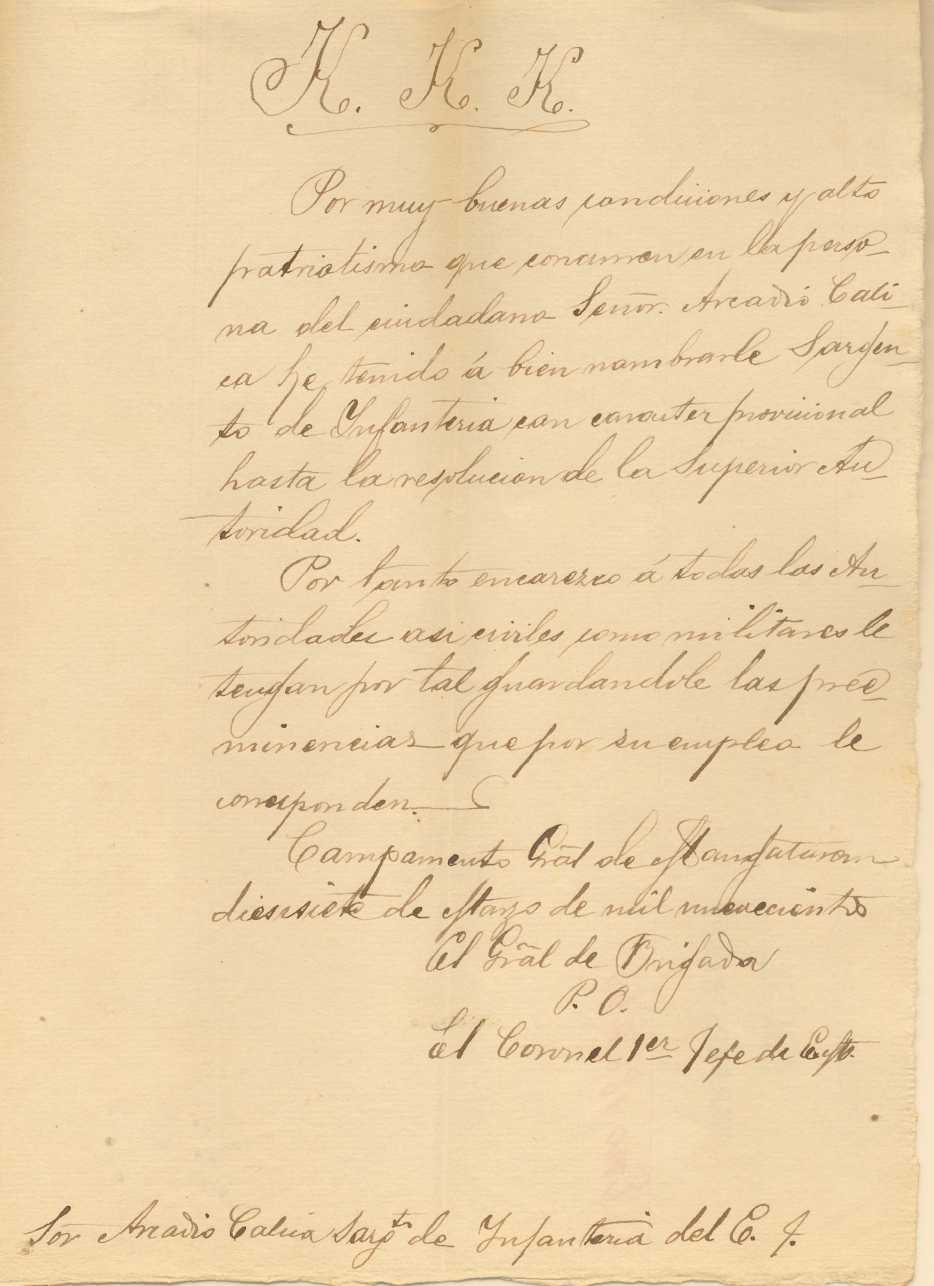 K. K. K.
Por muy buenas condiciones y alto
patriotismo que concurren en la perso-
na del ciudadano Señor. Arcadio Cali-
ca he tenido á bien nombrarle Sargen-
to de Infanteria con caracter provicional
hasta la resolucion de la Superior Au-
toridad.
Por tanto encarezco á todas las Au-
toridades asi civiles como militares le
tengan por tal guardandole las pree-
minencias que por su empleo le
corresponden.
Campamento Gral de
diesisiete de Marzo de mil nuevecientos
El Gral de Brigada
P. O.
El Coronel 1er Jefe de
Sor Arcadio Calica Sargto de Infanteria del E. F.